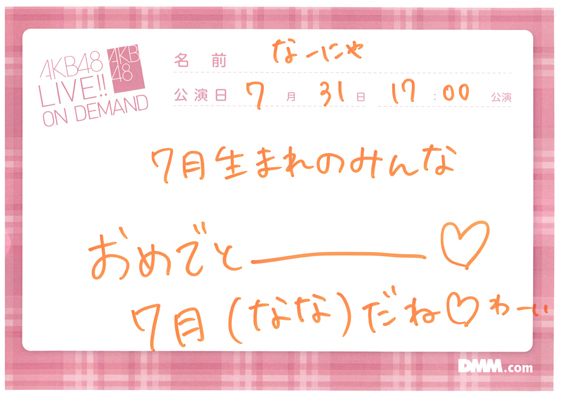 AKB48
LIVE!!
ON DEMAND
AKB
48
名前 なーにゃ
公演日 7月 31日 17:00 公演
7月生まれのみんな
おめでとーーー♡
7月(なな)だね♡わーい
DMM.com